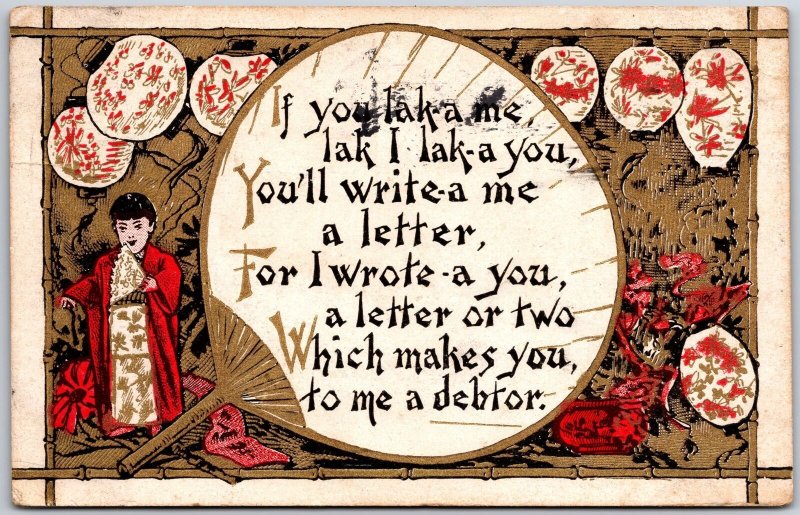 If you lak-a me,
lak I lak-a you,
You'll write-a me
a letter,
For I wrote-a you,
a letter or two
Which makes you,
to me a debtor.